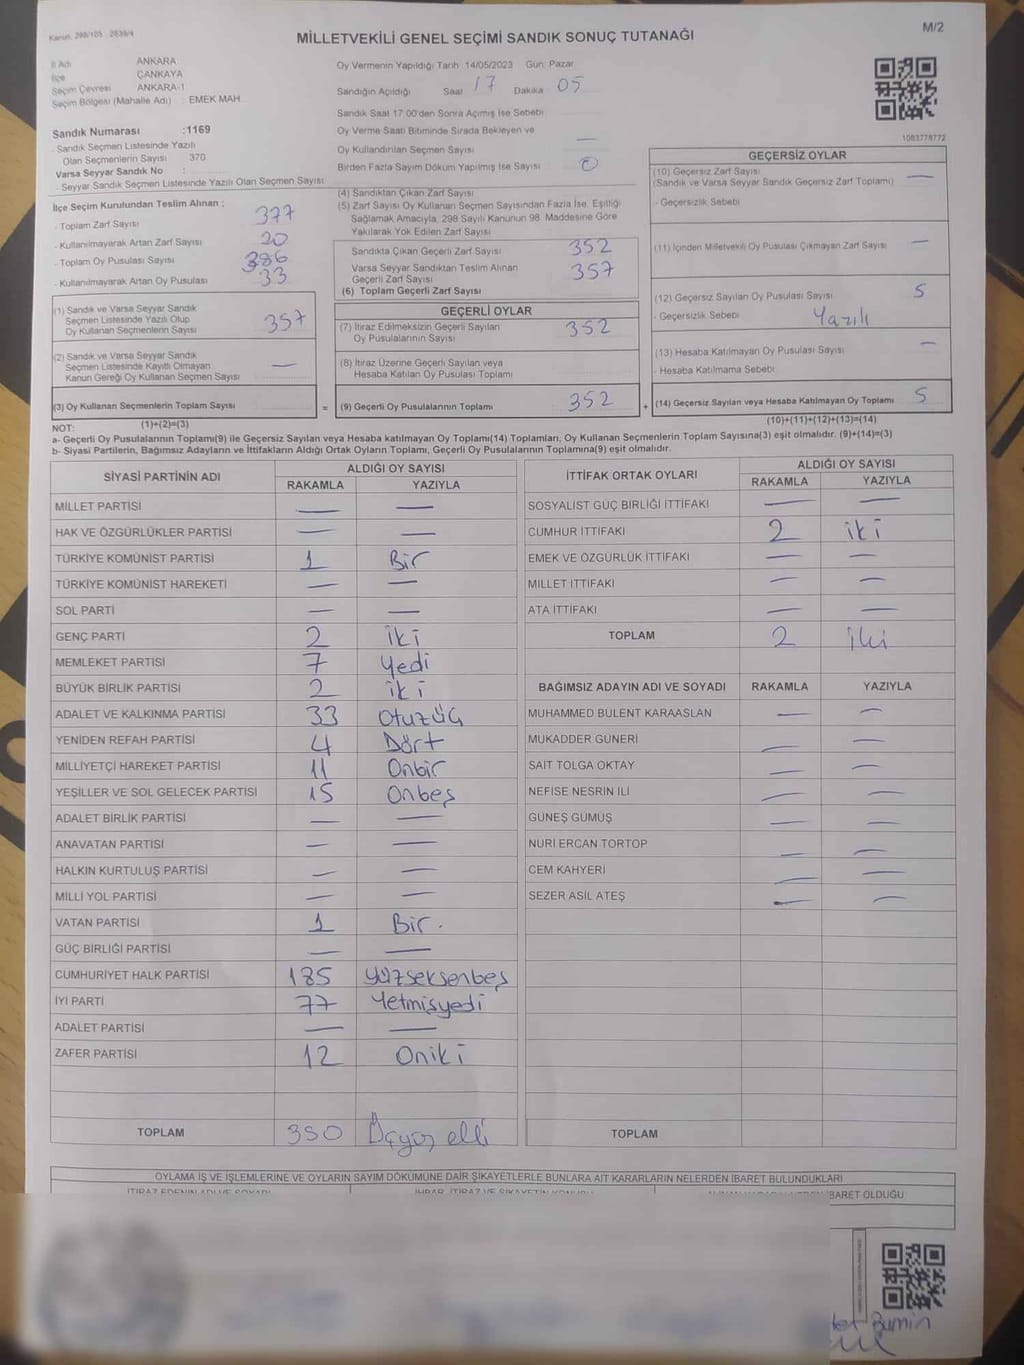 Kanun: 298/105 - 2839/4
M/2
MİLLETVEKİLİ GENEL SEÇİMİ SANDIK SONUÇ TUTANAĞI
İl Adı ANKARA
İlçe ÇANKAYA
Seçim Çevresi ANKARA-1
Seçim Bölgesi (Mahalle Adı) : EMEK MAH.
Sandık Numarası :1169
- Sandık Seçmen Listesinde Yazılı
Olan Seçmenlerin Sayısı 370
Varsa Seyyar Sandık No :
- Seyyar Sandık Seçmen Listesinde Yazılı Olan Seçmen Sayısı
İlçe Seçim Kurulundan Teslim Alınan ;
- Toplam Zarf Sayısı 377
- Kullanılmayarak Artan Zarf Sayısı 20
- Toplam Oy Pusulası Sayısı 386
- Kullanılmayarak Artan Oy Pusulası 33
(1) Sandık ve Varsa Seyyar Sandık
Seçmen Listesinde Yazılı Olup
Oy Kullanan Seçmenlerin Sayısı 357
(2) Sandık ve Varsa Seyyar Sandık
Seçmen Listesinde Kayıtlı Olmayan
Kanun Gereği Oy Kullanan Seçmen Sayısı —
(3) Oy Kullanan Seçmenlerin Toplam Sayısı
(1)+(2)=(3)
Oy Vermenin Yapıldığı Tarih 14/05/2023 Gün: Pazar
Sandığın Açıldığı Saat 17 Dakika 05
Sandık Saat 17.00'den Sonra Açımış İse Sebebi
Oy Verme Saati Bitiminde Sırada Bekleyen ve
Oy Kullandırılan Seçmen Sayısı —
Birden Fazla Sayım Döküm Yapılmış İse Sayısı 0
(4) Sandıktan Çıkan Zarf Sayısı
(5) Zarf Sayısı Oy Kullanan Seçmen Sayısından Fazla İse, Eşitliği
Sağlamak Amacıyla, 298 Sayılı Kanunun 98. Maddesine Göre
Yakılarak Yok Edilen Zarf Sayısı
Sandıkta Çıkan Geçerli Zarf Sayısı 352
Varsa Seyyar Sandıktan Teslim Alınan 357
Geçerli Zarf Sayısı
(6) Toplam Geçerli Zarf Sayısı
GEÇERLİ OYLAR
(7) İtiraz Edilmeksizin Geçerli Sayılan 352
Oy Pusulalarının Sayısı
(8) İtiraz Üzerine Geçerli Sayılan veya
Hesaba Katılan Oy Pusulası Toplamı
= (9) Geçerli Oy Pusulalarının Toplamı 352
1003778772
GEÇERSİZ OYLAR
(10) Geçersiz Zarf Sayısı —
(Sandık ve Varsa Seyyar Sandık Geçersiz Zarf Toplamı)
- Geçersizlik Sebebi
(11) İçinden Milletvekili Oy Pusulası Çıkmayan Zarf Sayısı —
(12) Geçersiz Sayılan Oy Pusulası Sayısı 5
- Geçersizlik Sebebi Yazılı
(13) Hesaba Katılmayan Oy Pusulası Sayısı —
- Hesaba Katılmama Sebebi
+ (14) Geçersiz Sayılan veya Hesaba Katılmayan Oy Toplamı 5
(10)+(11)+(12)+(13)=(14)
NOT:
a- Geçerli Oy Pusulalarının Toplamı(9) ile Geçersiz Sayılan veya Hesaba katılmayan Oy Toplamı(14) Toplamları, Oy Kullanan Seçmenlerin Toplam Sayısına(3) eşit olmalıdır. (9)+(14)=(3)
b- Siyasi Partilerin, Bağımsız Adayların ve İttifakların Aldığı Ortak Oyların Toplamı, Geçerli Oy Pusulalarının Toplamına(9) eşit olmalıdır.
SİYASİ PARTİNİN ADI ALDIĞI OY SAYISI
RAKAMLA YAZIYLA
MİLLET PARTİSİ — —
HAK VE ÖZGÜRLÜKLER PARTİSİ — —
TÜRKİYE KOMÜNİST PARTİSİ 1 Bir
TÜRKİYE KOMÜNİST HAREKETİ — —
SOL PARTİ — —
GENÇ PARTİ 2 iki
MEMLEKET PARTİSİ 7 Yedi
BÜYÜK BİRLİK PARTİSİ 2 iki
ADALET VE KALKINMA PARTİSİ 33 Otuzüç
YENİDEN REFAH PARTİSİ 4 Dört
MİLLİYETÇİ HAREKET PARTİSİ 11 Onbir
YEŞİLLER VE SOL GELECEK PARTİSİ 15 Onbeş
ADALET BİRLİK PARTİSİ — —
ANAVATAN PARTİSİ — —
HALKIN KURTULUŞ PARTİSİ — —
MİLLİ YOL PARTİSİ — —
VATAN PARTİSİ 1 Bir.
GÜÇ BİRLİĞİ PARTİSİ — —
CUMHURİYET HALK PARTİSİ 185 yüzseksenbeş
İYİ PARTİ 77 Yetmişyedi
ADALET PARTİSİ — —
ZAFER PARTİSİ 12 Oniki
TOPLAM 350 Üçyüz elli
İTTİFAK ORTAK OYLARI ALDIĞI OY SAYISI
RAKAMLA YAZIYLA
SOSYALİST GÜÇ BİRLİĞİ İTTİFAKI — —
CUMHUR İTTİFAKI 2 iki
EMEK VE ÖZGÜRLÜK İTTİFAKI — —
MİLLET İTTİFAKI — —
ATA İTTİFAKI — —
TOPLAM 2 iki
BAĞIMSIZ ADAYIN ADI VE SOYADI RAKAMLA YAZIYLA
MUHAMMED BÜLENT KARAASLAN — —
MUKADDER GÜNERİ — —
SAİT TOLGA OKTAY — —
NEFİSE NESRİN İLİ — —
GÜNEŞ GÜMÜŞ — —
NURİ ERCAN TORTOP — —
CEM KAHYERİ — —
SEZER ASİL ATEŞ — —
TOPLAM
OYLAMA İŞ VE İŞLEMLERİNE VE OYLARIN SAYIM DÖKÜMÜNE DAİR ŞİKAYETLERLE BUNLARA AİT KARARLARIN NELERDEN İBARET BULUNDUKLARI
İTİRAZ EDENİN ADI VE SOYADI İHBAR, İTİRAZ VE ŞİKAYETİN KONUSU BARET OLDUĞU